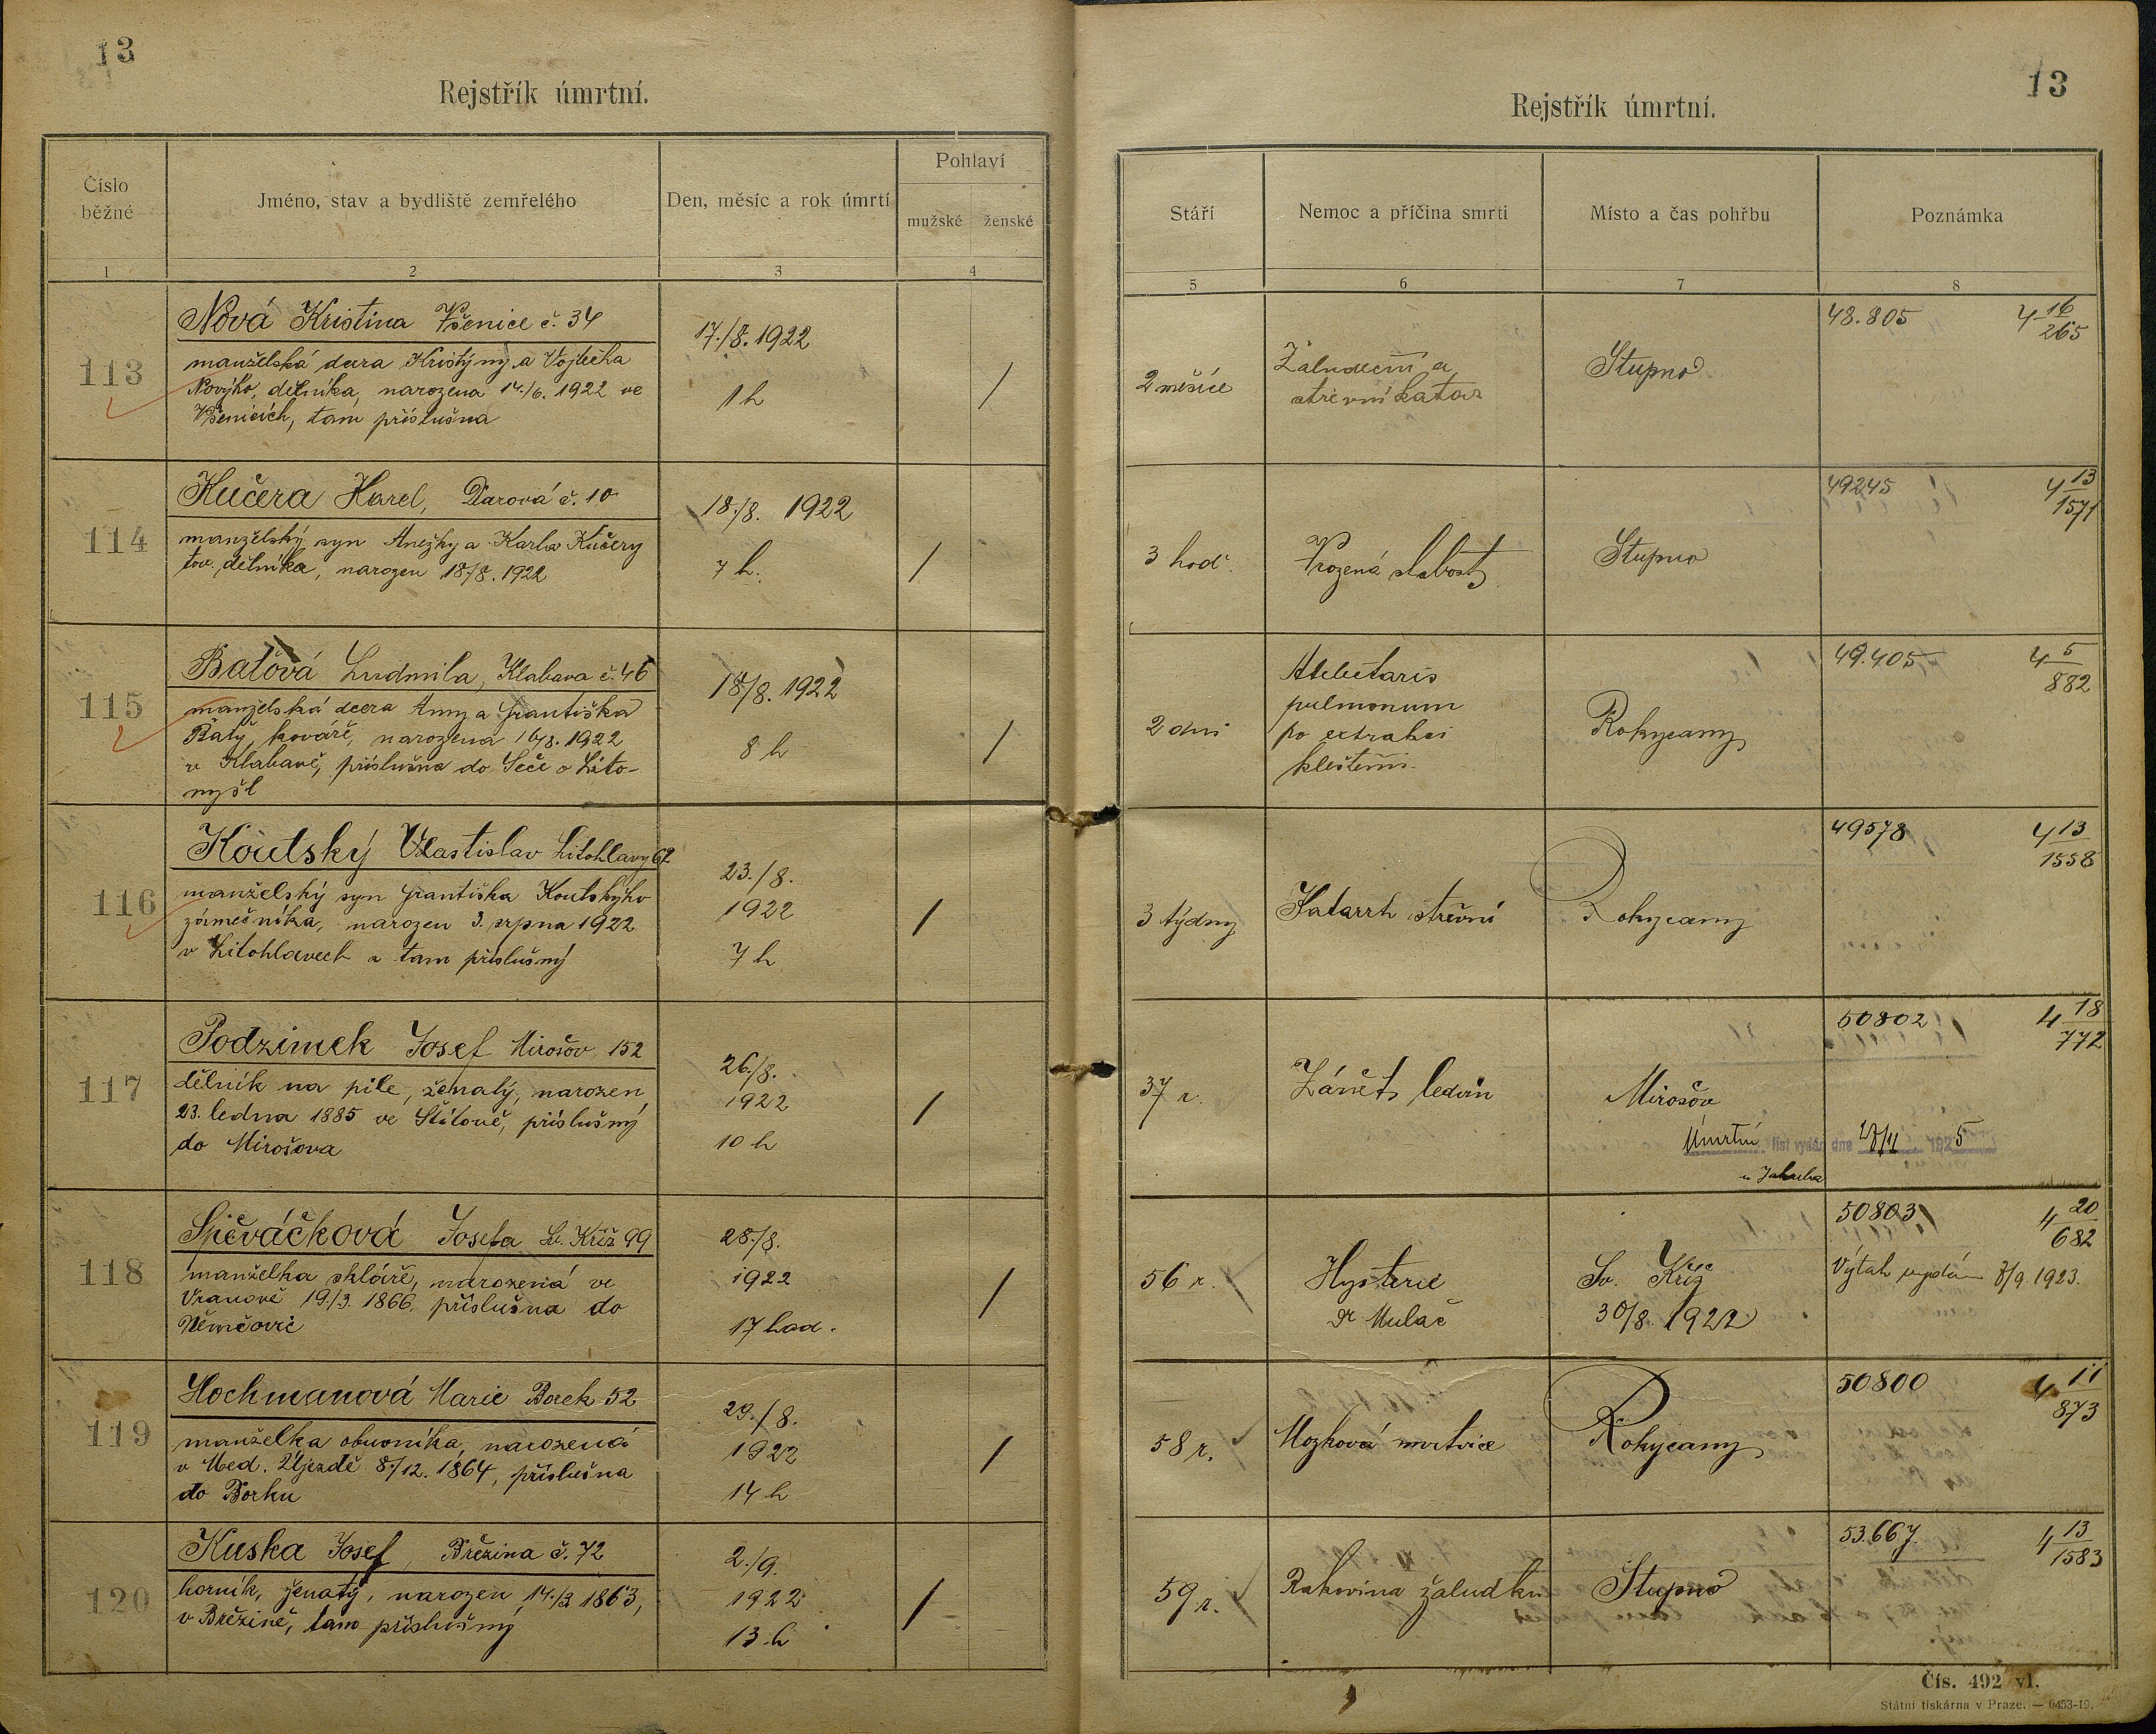 13
Rejstřík úmrtní.
Číslo běžné
Jméno, stav a bydliště zemřelého
Den, měsíc a rok úmrtí
Pohlaví
mužské
ženské
1
2
3
4
113
Nová Kristina Všenice č. 34
manželská dcera Kristýny a Vojtěcha
Nového, dělníka, narozena 14./6. 1922 ve
Všenicích, tam příslušna
17./8. 1922
1 h
/
114
Kučera Karel, Darová č. 10
manželský syn Anežky a Karla Kučery
tov. dělníka, narozen 18/8. 1922
18./8. 1922
7 h.
/
115
Baťová Ludmila, Klabava č. 46
manželská dcera Anny a Františka
Bati, kováře, narozena 16/8. 1922
v Klabavě, příslušna do Seče o Lito-
myšl
18/8. 1922
8 h
/
116
Koutský Vlastislav Litohlavy 62
manželský syn Františka Koutského
zámečníka, narozen 3. srpna 1922
v Litohlavech a tam příslušný
23./8.
1922
7 h
/
117
Podzimek Josef Mirošov 152
dělník na pile, ženatý, narozen
23. ledna 1885 ve Štítově, příslušný
do Mirošova
26./8.
1922
10 h
/
118
Spěváčková Josefa Sv. Kříž 99
manželka skláře, narozená ve
Vranově 19./3. 1866. příslušna do
Němčovic
28./8.
1922
17 hod.
/
119
Hochmanová Marie Borek 52
manželka obuvníka, narozená
v Med. Újezdě 8./12. 1864, příslušna
do Borku
29./8.
1922
14 h
/
120
Kuska Josef, Březina č. 72
horník, ženatý, narozen 14./3. 1863,
v Březině, tam příslušný
2./9.
1922
13 h
/
13
Rejstřík úmrtní.
Stáří
Nemoc a příčina smrti
Místo a čas pohřbu
Poznámka
5
6
7
8
2 měsíce
Žaludeční a
střevní katar
Stupno
48.805
4 16/265
3 hod.
Vrozená slabost
Stupno
49245
4 13/1571
2 dni
Atelectaris
pulmonum
po extrakci
kleštěmi.
Rokycany
49.405
4 5/882
3 týdny
Katarrh střevní
Rokycany
49578
4 13/1558
37 r.
Zánět ledvin
Mirošov
50802
4 18/772
Úmrtní list vydán dne 1925
56 r.
Hysterie
Dr Mulač
Sv. Kříž
30/8. 1922
50803
4 20/682
Výtah vydán 8/9. 1923.
58 r.
Mozková mrtvice
Rokycany
50800
4 11/873
59 r.
Rakovina žaludku
Stupno
53.667.
4 13/1583
Čís. 492 vl.
Státní tiskárna v Praze. — 6453-19.